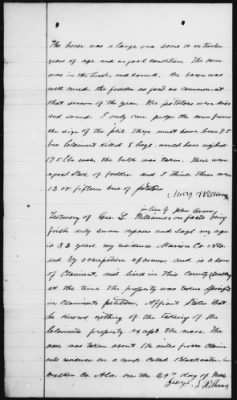 The horse was a large one some 10 or twelve
years of age and in good condition. The corn
was in the husk and sound. The bacon was
well cured. The fodder as good as common at
that season of the year. The potatoes were nice
and sound. I only can judge the corn from
the size of the pile there must have been 75
bus Claimant killed 8 hogs, would have weighed
175 lbs when the bulk was taken. There were
a good stack of fodder and I think there were
12 or fifteen bus of potatoes
Testimony of Geo. L. Williams on facts being
first duly sworn deposes and says my age
is 33 years, my residence Marion Co Ala.
and by occupation a farmer and is a son
of Claimant, and lived in this County
at the time the property was taken specified
in Claimants petition, Affiant states that
he knows nothing of the taking of the
Claimants property except the mare. The mare
was taken about 1½ miles from Claim
ants residence on a creek called Blackwater in
Walker Co Ala. on the day of
George L Williams